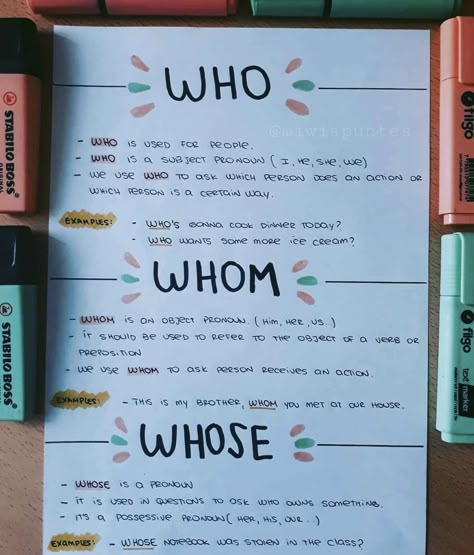 WHO
@miwispuntes
- WHO IS USED FOR PEOPLE.
- WHO IS A SUBJECT PRONOUN ( I, HE, SHE, WE)
- WE USE WHO TO ASK WHICH PERSON DOES AN ACTION OR
WHICH PERSON IS A CERTAIN WAY.
EXAMPLES: - WHO'S GONNA COOK DINNER TODAY?
- WHO WANTS SOME MORE ICE CREAM?
WHOM
- WHOM IS AN OBJECT PRONOUN. ( HIM, HER, US..)
- IT SHOULD BE USED TO REFER TO THE OBJECT OF A VERB OR
PREPOSITION
- WE USE WHOM TO ASK PERSON RECEIVES AN ACTION.
EXAMPLES: - THIS IS MY BROTHER, WHOM YOU MET AT OUR HOUSE.
WHOSE
- WHOSE IS A PRONOUN
- IT IS USED IN QUESTIONS TO ASK WHO OWNS SOMETHING.
- IT'S A POSSESSIVE PRONOUN ( HER, HIS, OUR...)
EXAMPLES: - WHOSE NOTEBOOK WAS STOLEN IN THE CLASS?
STABILO BOSS
ORIGINAL
STABILO BOSS
filgo
filgo
text marker